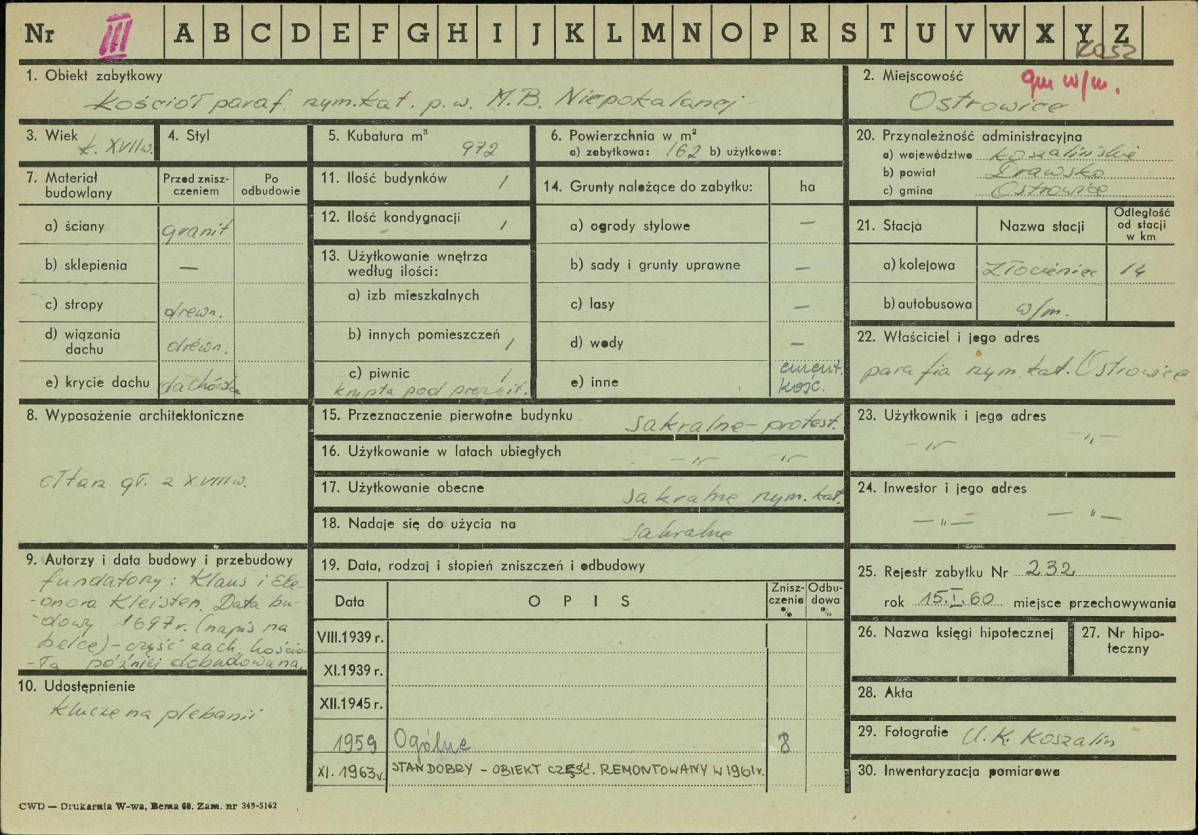 Nr III A B C D E F G H I J K L M N O P R S T U V W X Y Z
KOSZ
1. Obiekt zabytkowy
Kościół paraf. rzym.kat. p.w. M.B. Niepokalanej
2. Miejscowość
gm w/m.
Ostrowice
3. Wiek
k. XVII w.
4. Styl
5. Kubatura m³
972
6. Powierzchnia w m²
a) zabytkowa: 162 b) użytkowa:
20. Przynależność administracyjna
a) województwo koszalińskie
b) powiat Drawsko
c) gmina Ostrowice
7. Materiał budowlany
Przed znisz-
czeniem
Po
odbudowie
a) ściany granit
b) sklepienia —
c) stropy drewn.
d) wiązania
dachu drewn.
e) krycie dachu dachówka
11. Ilość budynków 1
12. Ilość kondygnacji 1
13. Użytkowanie wnętrza
według ilości:
a) izb mieszkalnych
b) innych pomieszczeń 1
c) piwnic 1
krypta pod prezbit.
14. Grunty należące do zabytku: ha
a) ogrody stylowe —
b) sady i grunty uprawne —
c) lasy —
d) wody —
e) inne cment.
kość.
21. Stacja Nazwa stacji
Odległość
od stacji
w km
a) kolejowa Złocieniec 14
b) autobusowa w/m.
22. Właściciel i jego adres
parafia rzym.kat. Ostrowice
8. Wyposażenie architektoniczne
ołtarz gł. z XVIII w.
15. Przeznaczenie pierwotne budynku sakralne - protest.
16. Użytkowanie w latach ubiegłych -"- -"-
17. Użytkowanie obecne sakralne rzym. kat.
18. Nadaje się do użycia na sakralne
23. Użytkownik i jego adres
-"- -"-
24. Inwestor i jego adres
-"- -"-
9. Autorzy i data budowy i przebudowy
fundatorzy: Klaus i Ele-
-onora Kleisten. Data bu-
-dowy 1697r. (napis na
belce) - część zach. kościo-
-ła później dobudowana.
10. Udostępnienie
klucze na plebanii
19. Data, rodzaj i stopień zniszczeń i odbudowy
Data OPIS
Znisz-
czenia
%
Odbu-
dowa
%
VIII.1939 r.
XI.1939 r.
XII.1945 r.
1959 Ogólne 8
XI. 1963 r. STAN DOBRY - OBIEKT CZĘŚĆ. REMONTOWANY W 1961 r.
25. Rejestr zabytku Nr 232
rok 15.I.60 miejsce przechowywania
26. Nazwa księgi hipotecznej
27. Nr hipo-
teczny
28. Akta
29. Fotografie U.K. Koszalin
30. Inwentaryzacja pomiarowa
CWD — Drukarnia W-wa, Bema 60. Zam. nr 349-5162